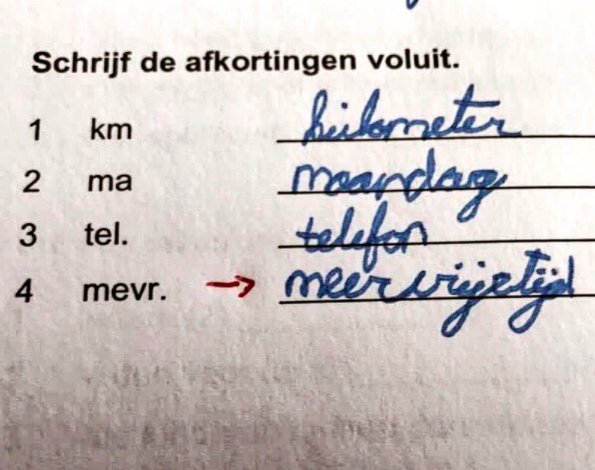 Schrijf de afkortingen voluit.
1 km kilometer
2 ma maandag
3 tel. telefon
4 mevr. → meer vrije tijd